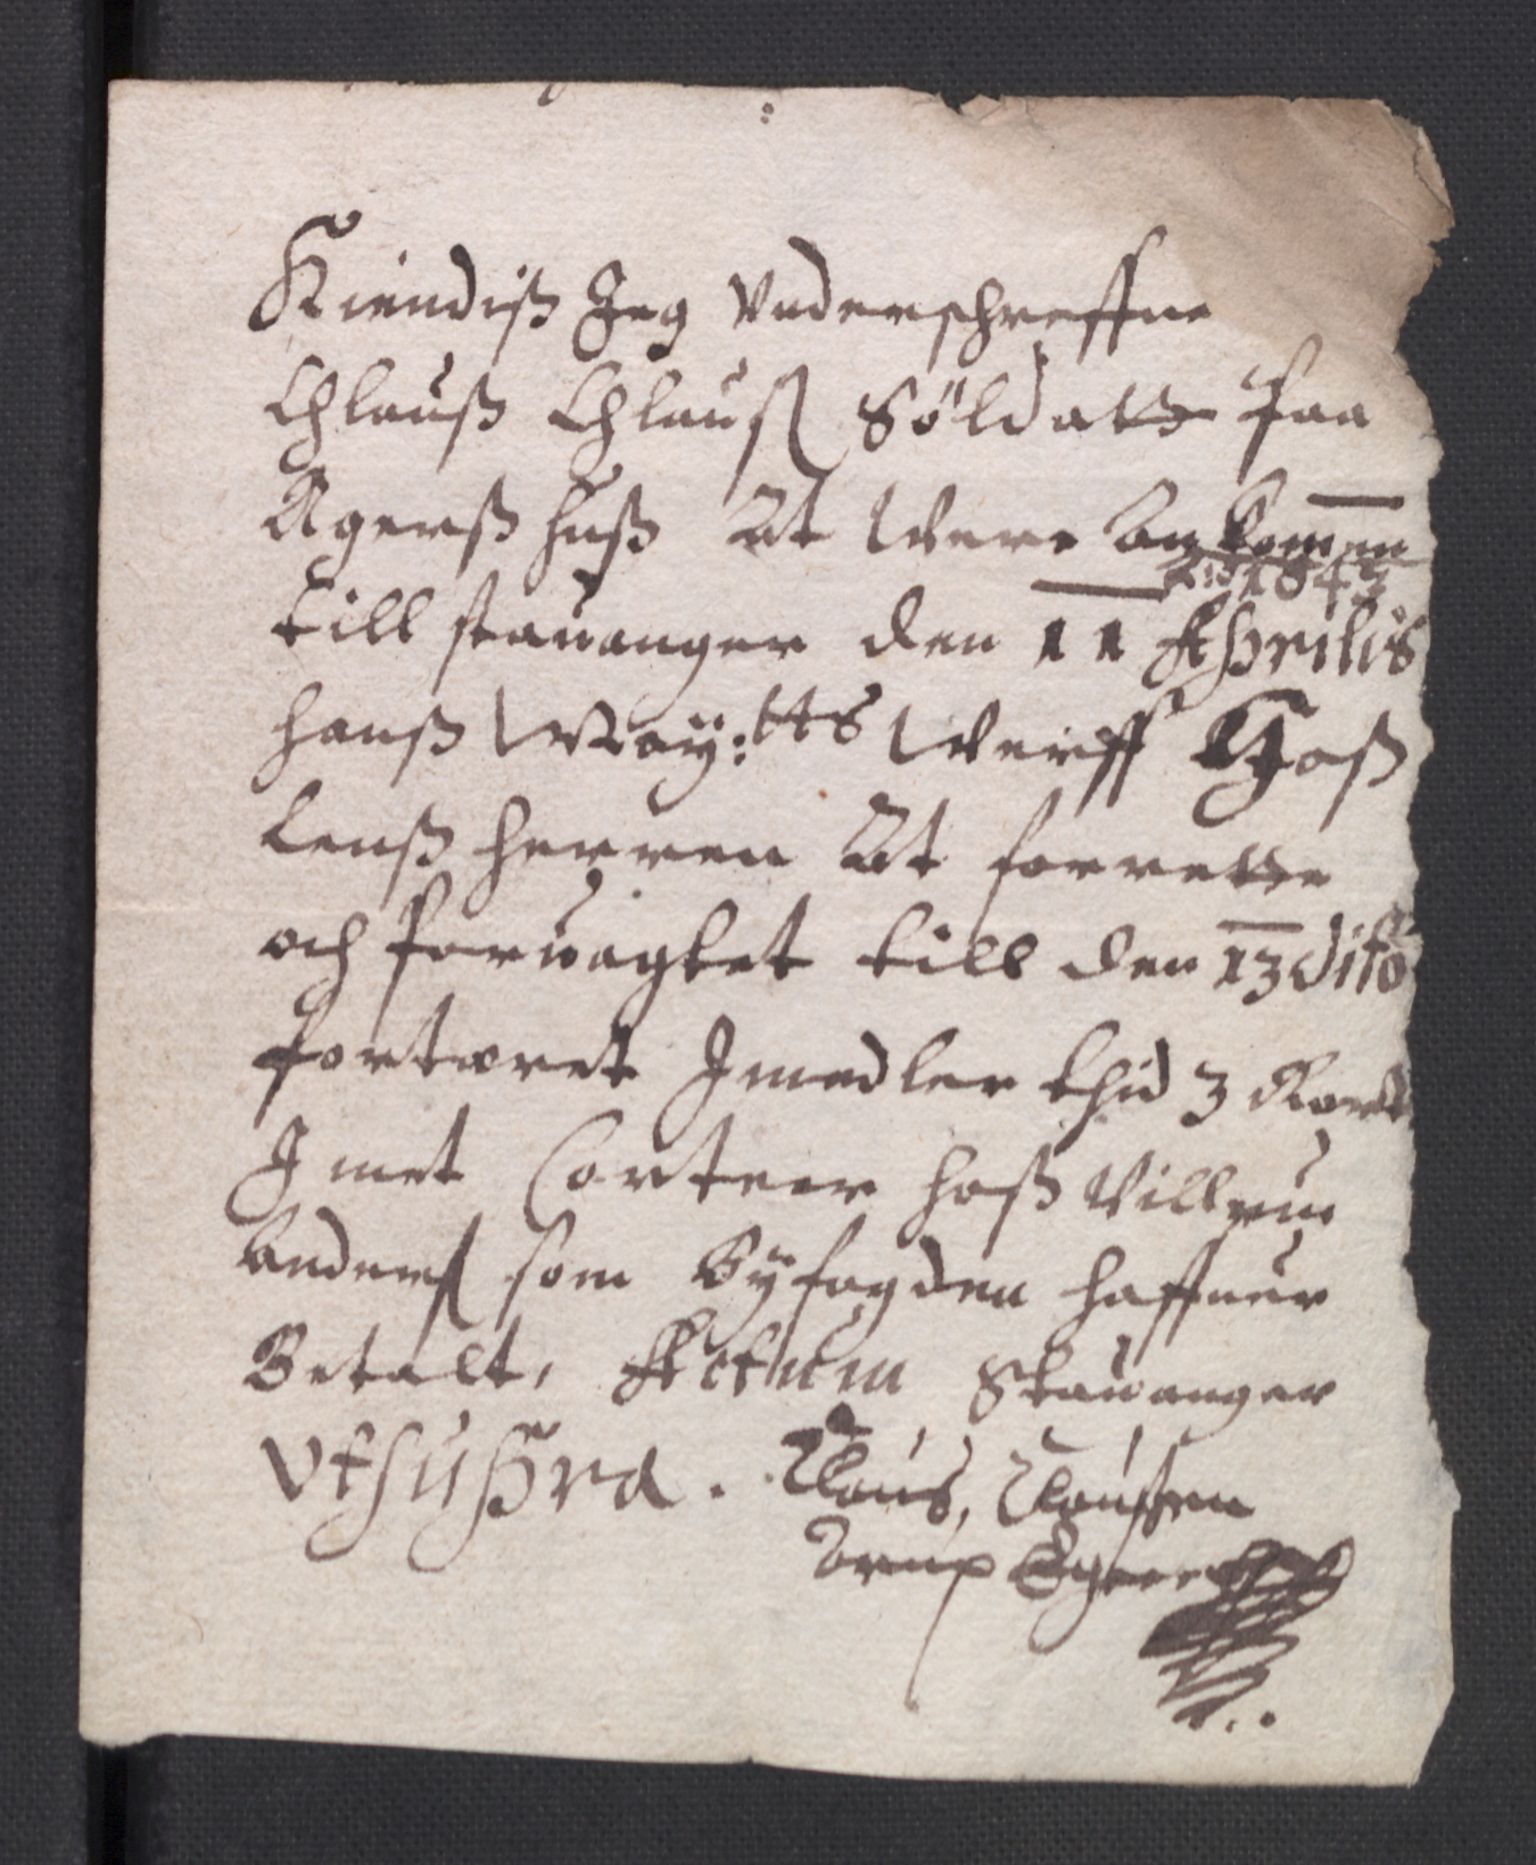 Kiendiß Jeg Underschreffne
Chlauß Chlausß Söldatt paa
Agerß huß At Were An komen
Ao 1643
till stauanger den 11 Aprilis
hanß May:tts Werff Hoß
lenß herren At forrette
och foruagtet till den 13 dito
fortæret Jmedler thid 3 Mark
J met Corteer hoß Villum
Anderß som Byfogden haffuer
Betalt, Actum Stauanger
Vt supra. Claus, Claussen
Egen